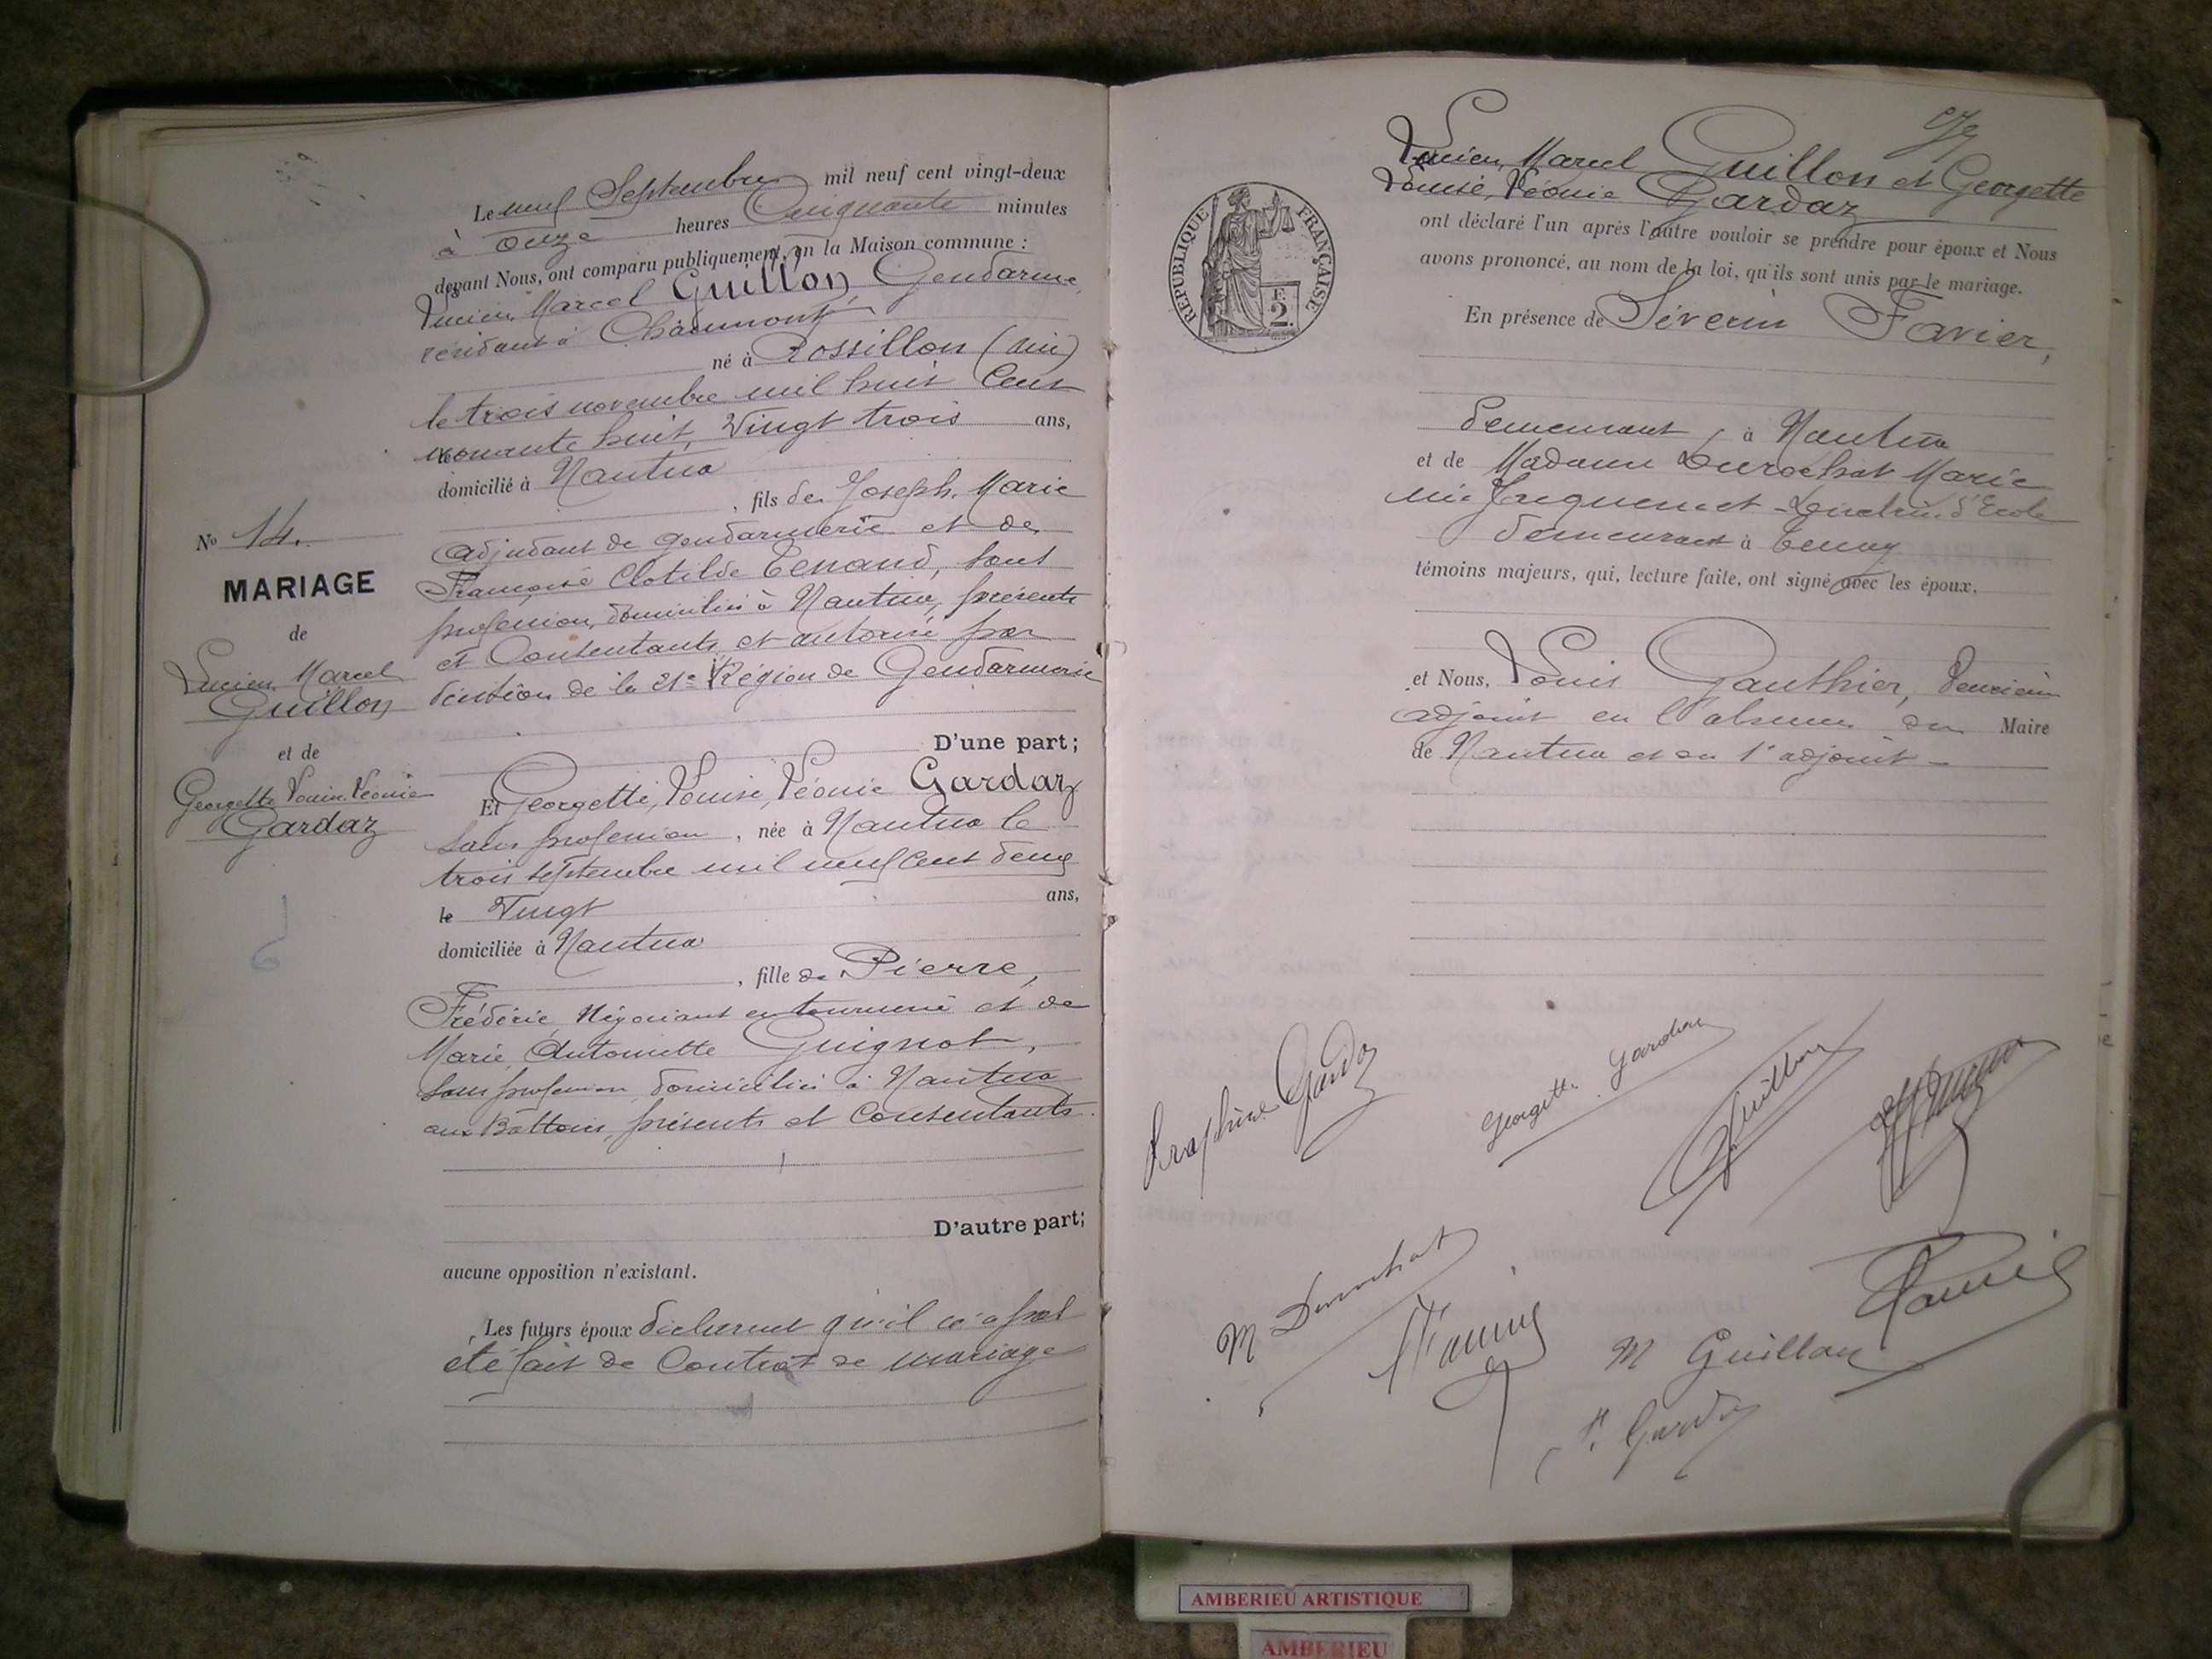 Le neuf Septembre mil neuf cent vingt-deux
à onze heures Cinquante minutes
devant Nous, ont comparu publiquement, en la Maison commune :
Lucien, Marcel Guillon, Gendarme,
résidant à Chaumont,
né à Rossillon (Ain)
le trois novembre mil huit Cent
huit, Vingt trois ans,
domicilié à Nantua
, fils de Joseph, Marie
adjudant de gendarmerie et de
Clotilde Tenand, sans
profession, domiciliés à Nantua, présents
et Consentants et autorisé par
de la 21e Région de Gendarmerie
D'une part;
Et Georgette, Louise, Léonie Gardaz
sans profession, née à Nantua le
trois septembre mil neuf Cent deux
le Vingt ans,
domiciliée à Nantua
, fille de Pierre,
Frédéric, Négociant en et de
Marie, Antoinette Guignot,
sans profession, domiciliés à Nantua
aux Battoirs, présents et Consentants.
D'autre part;
aucune opposition n'existant.
Les futurs époux déclarent qu'il n'a pas
été fait de Contrat de mariage
No 14.
MARIAGE
de
Lucien, Marcel
Guillon
et de
Georgette, Louise, Léonie
Gardaz
Lucien, Marcel Guillon et Georgette
Louise, Léonie Gardaz
ont déclaré l'un après l'autre vouloir se prendre pour époux et Nous
avons prononcé, au nom de la loi, qu'ils sont unis par le mariage.
En présence de Séverin Favier,
demeurant, à Nantua
et de Madame Durochat Marie
née Jacquemet d'Ecole
demeurant à Tenay
témoins majeurs, qui, lecture faite, ont signé avec les époux,
et Nous, Louis Gauthier, deuxième
adjoint en l'absence du Maire
de Nantua et du 1er adjoint
RÉPUBLIQUE FRANÇAISE
F.
2.
Gardaz
Georgette Gardaz
Guillon
M Durochat
M Guillon
AMBERIEU ARTISTIQUE
AMBERIEU